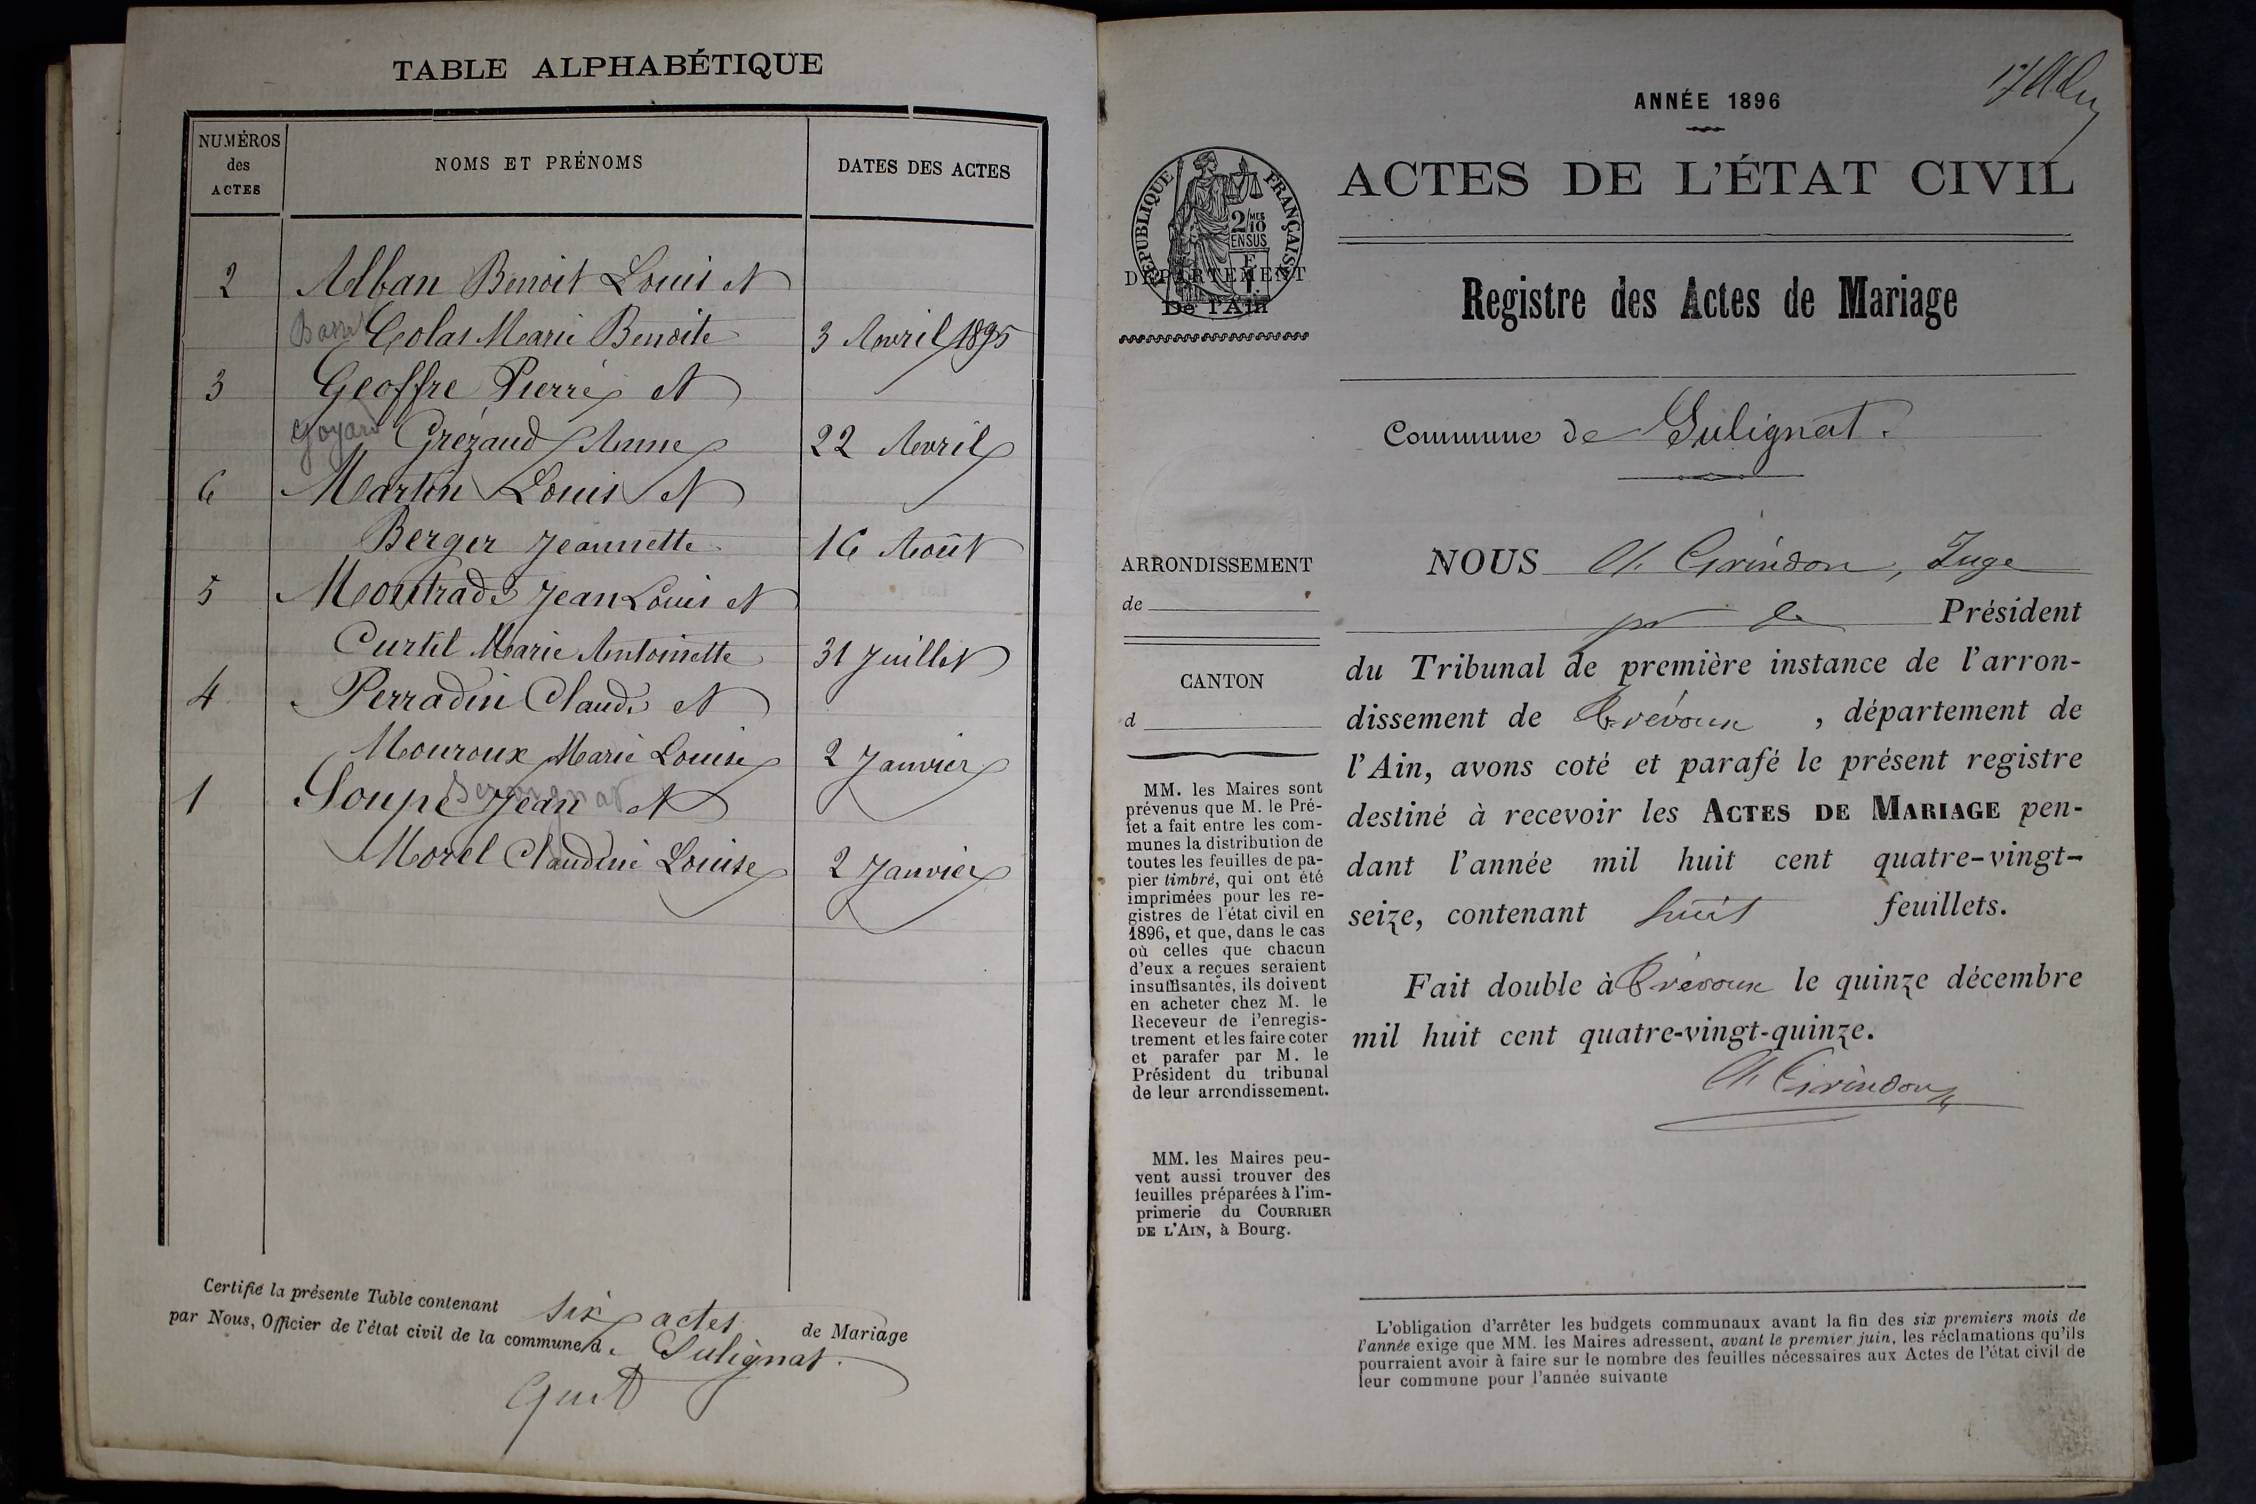 TABLE ALPHABÉTIQUE
NUMÉROS
des
ACTES
NOMS ET PRÉNOMS
DATES DES ACTES
2 Alban Benoit Louis et
Colas Marie Benoite 3 Avril 1895
3 Geoffre Pierre et
Goyard Grézaud Anne 22 Avril
6 Martin Louis et
Berger Jeannette 16 Août
5 Montrade Jean Louis et
Curtil Marie Antoinette 31 Juillet
4 Perradin Claude et
Mouroux Marie Louise 2 Janvier
1 Soupe Jean et
Morel Claudine Louise 2 Janvier
Certifié la présente Table contenant six actes de Mariage
par Nous, Officier de l'état civil de la commune de Sulignat.
ANNÉE 1896
ACTES DE L'ÉTAT CIVIL
RÉPUBLIQUE FRANÇAISE
2/10 MES
EN SUS
DÉPARTEMENT
De l'Ain
Registre des Actes de Mariage
Commune de Sulignat.
ARRONDISSEMENT
de
CANTON
d
MM. les Maires sont
prévenus que M. le Pré-
fet a fait entre les com-
munes la distribution de
toutes les feuilles de pa-
pier timbré, qui ont été
imprimées pour les re-
gistres de l'état civil en
1896, et que, dans le cas
où celles que chacun
d'eux a reçues seraient
insuffisantes, ils doivent
en acheter chez M. le
Receveur de l'enregis-
trement et les faire coter
et parafer par M. le
Président du tribunal
de leur arrondissement.
MM. les Maires peu-
vent aussi trouver des
feuilles préparées à l'im-
primerie du COURRIER
DE L'AIN, à Bourg.
NOUS Ch. Girindon, Juge
pr le Président
du Tribunal de première instance de l'arron-
dissement de Trévoux, département de
l'Ain, avons coté et parafé le présent registre
destiné à recevoir les ACTES DE MARIAGE pen-
dant l'année mil huit cent quatre-vingt-
seize, contenant huit feuillets.
Fait double à Trévoux le quinze décembre
mil huit cent quatre-vingt-quinze.
Ch. Girindon
L'obligation d'arrêter les budgets communaux avant la fin des six premiers mois de
l'année exige que MM. les Maires adressent, avant le premier juin, les réclamations qu'ils
pourraient avoir à faire sur le nombre des feuilles nécessaires aux Actes de l'état civil de
leur commune pour l'année suivante